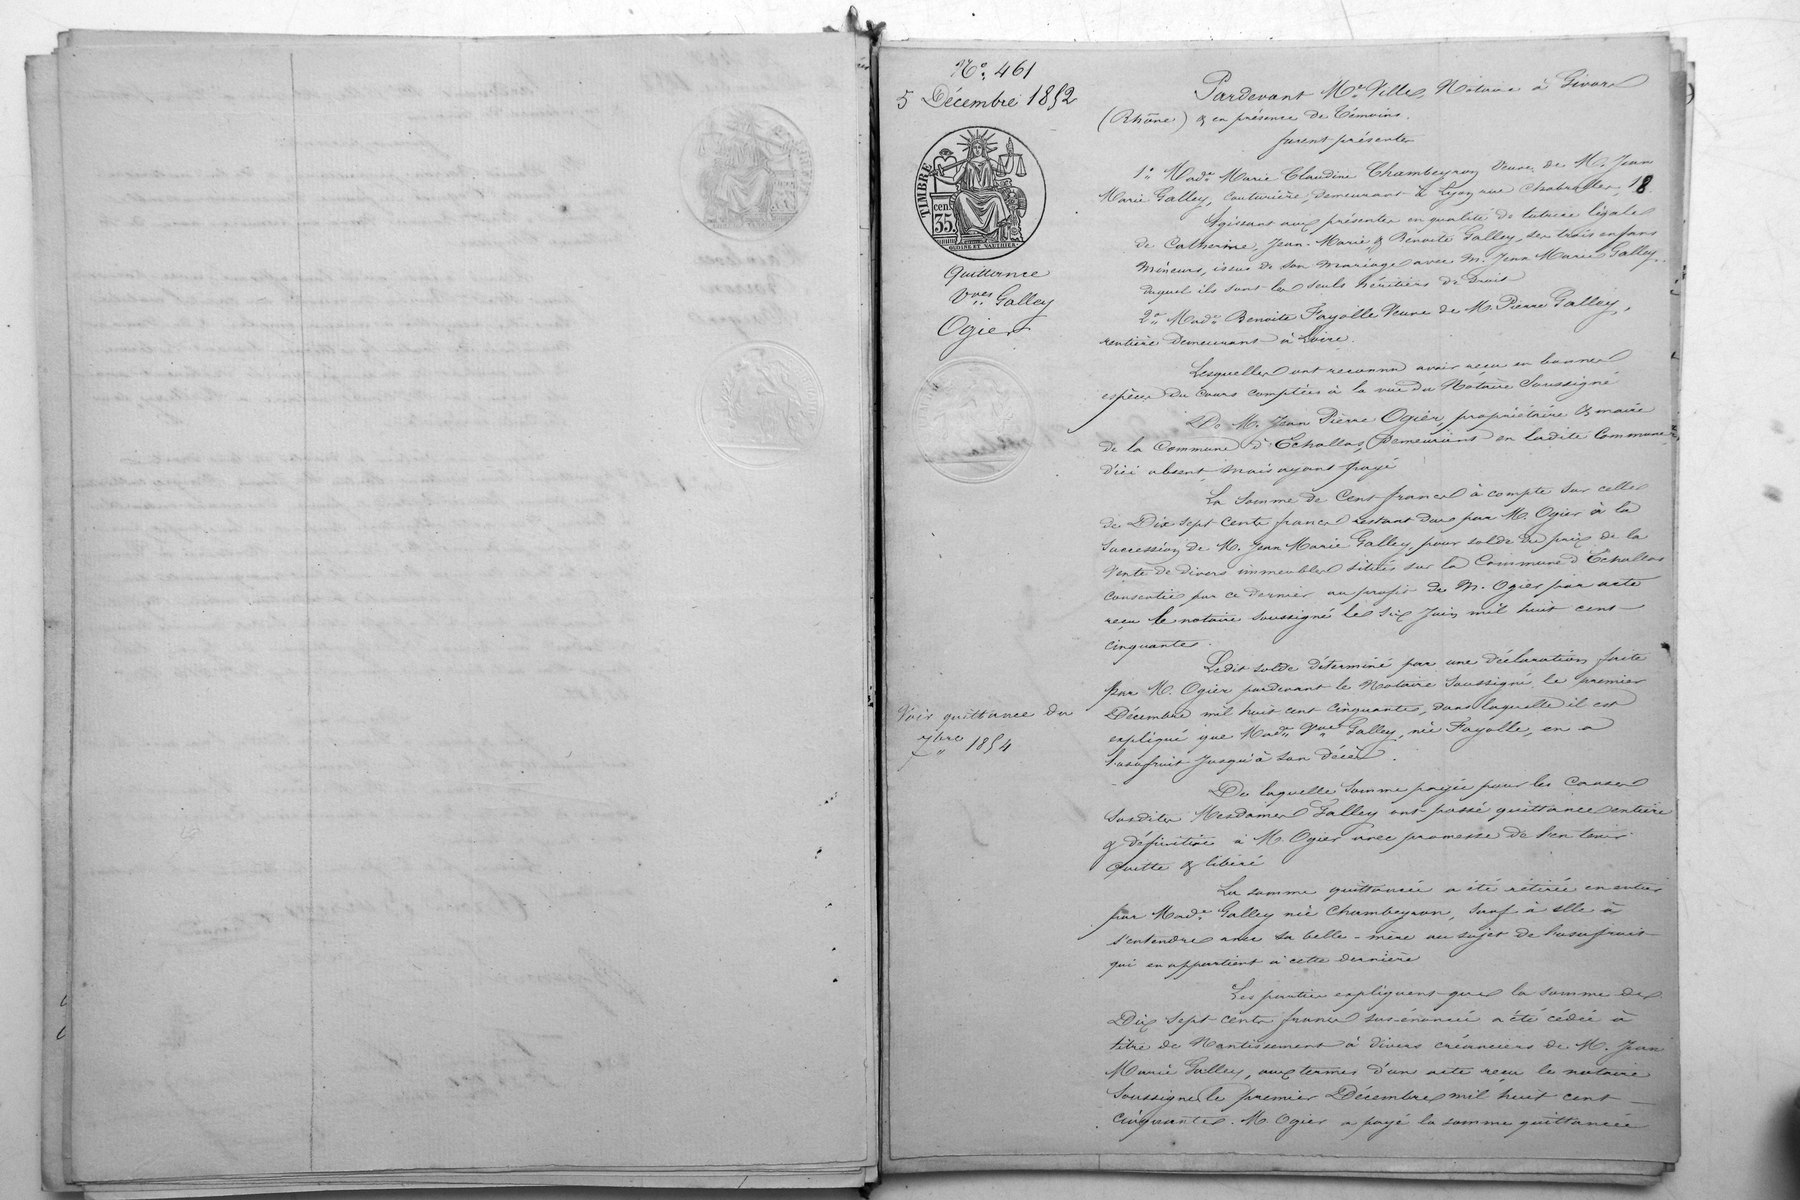 N° 461
5 Décembre 1852
TIMBRE
cen.
35.
Quittance
Vves Galley
Ogier
Voir quittance du
7bre 1854
Pardevant Me Ville, Notaire à Givors
(Rhône) & en présence de Témoins.
furent présentes
1° Made Marie Claudine Chambeyron Veuve de M. Jean
Marie Galley, couturière, demeurant à Lyon rue 18
Agissant aux présentes en qualité de tutrice légale
de Catherine, Jean-Marie & Benoite Galley, ses trois enfans
mineurs, issus de son mariage avec M. Jean Marie Galley
duquel ils sont les seuls héritiers de Droit
2° Made Benoite Fayolle Veuve de M. Pierre Galley,
rentière demeurant à Loire.
Lesquelles ont reconnu avoir reçu en bonnes
espèces du cours comptées à la vue du Notaire Soussigné
De M. Jean Pierre Ogier, propriétaire & maire
de la Commune d'Echallas, demeurant en ladite Commune
d'ici absent mais ayant payé
La somme de Cent francs à compte sur celle
de Dix sept cents francs restant due par M. Ogier à la
succession de M. Jean Marie Galley, pour solde du prix de la
vente de divers immeubles situés sur la Commune d'Echallas
consentie par ce dernier au profit de M. Ogier par acte
reçu le notaire soussigné le six Juin mil huit cent
cinquante.
Ledit solde déterminé par une déclaration faite
par M. Ogier pardevant le Notaire Soussigné le premier
Décembre mil huit cent cinquante, dans laquelle il est
expliqué que Made Vve Galley, née Fayolle, en a
l'usufruit jusqu'à son décès.
De laquelle somme payée pour les causes
susdites Mesdames Galley ont passé quittance entière
& définitive à M. Ogier avec promesse de l'en tenir
quitte & libéré
La somme quittancée a été retirée en entier
par Made Galley née Chambeyron, sauf à elle à
s'entendre avec sa belle-mère au sujet de l'usufruit
qui en appartient à cette dernière
Les parties expliquent que la somme de
Dix sept cents francs sus-énoncée a été cédée à
titre de Nantissement à divers créanciers de M. Jean
Marie Galley, aux termes d'un acte reçu le notaire
Soussigné le premier Décembre mil huit cent
cinquante. M. Ogier a payé la somme quittancée